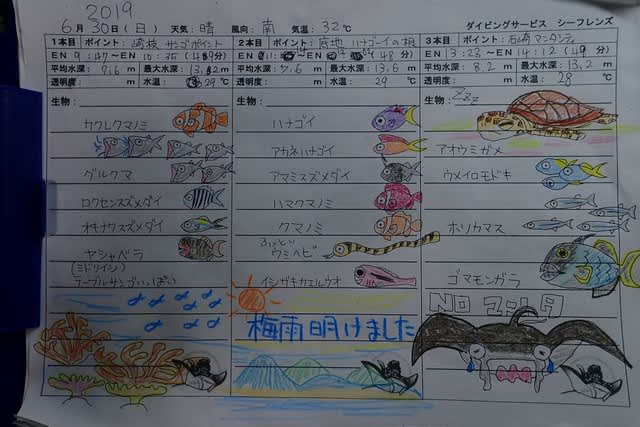 2019
6月30日(日) 天気:晴 風向:南 気温:32℃ ダイビングサービス シーフレンズ
1本目 ポイント:崎枝 サンゴポイント
EN 9:47～
平均水深: 9.6 m 最大水深: 13.2m
透明度: m 水温: 29℃
生物:
カクレクマノミ
グルクマ
ロクセンスズメダイ
オキナワスズメダイ
ヤシャベラ
(ミドリイシ)
テーブルサンゴいっぱい
2本目 ポイント:底地 ハナゴーイの根
平均水深: 7.6 m 最大水深: 13.6 m
透明度: m 水温: 29 ℃
生物:
ハナゴイ
アカネハナゴイ
アマミスズメダイ
ハマクマノミ
クマノミ
ふっとい
ウミヘビ
イシガキカエルウオ
梅雨明けました
3本目 ポイント:石崎 マンタシティ
EN 13:23～EN 14:12 (49分)
平均水深: 8.2 m 最大水深: 13.2 m
透明度: m 水温: 28 ℃
生物: Zzzz
アオウミガメ
ウメイロモドキ
ホソカマス
ゴマモンガラ
NO マンタ